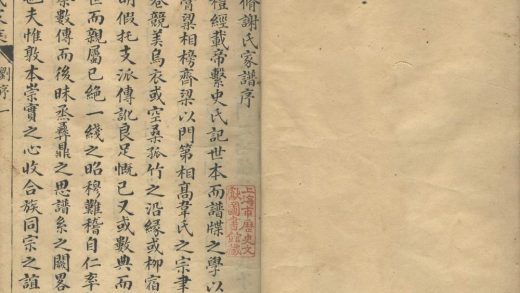 脩謝氏家譜序
禮經載帝繫史氏記世本而譜牒之學以
梁相榜齊梁以門第相高韋氏之宗
巷競美烏衣或空桑孤竹之沿緣或柳宿
假托支派傳訛良足慨已又或數典而
世而親屬已絕一綫之昭穆難稽自仁率
數傳而後昧烝彝鼎之思譜系之闕略
也夫惟敦本崇實之心收合族同宗之誼
劉序 一
上海市歷史文
獻圖書館藏